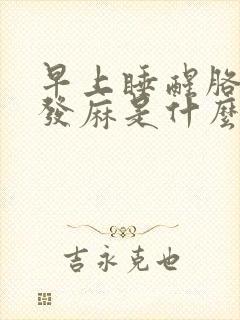 早上睡醒胳
發麻是什麼
吉永克也